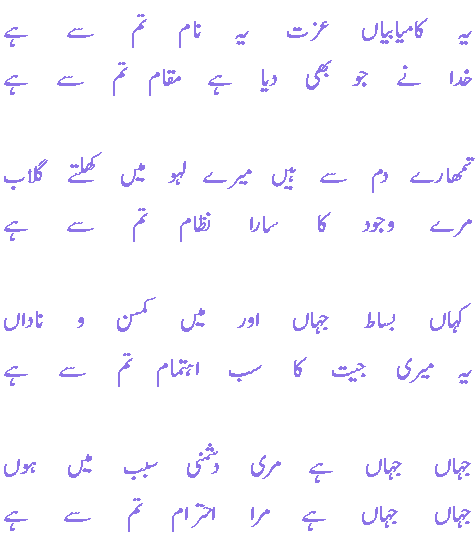 یہ کامیابیاں عزت یہ نام تم سے ہے
خدا نے جو بھی دیا ہے مقام تم سے ہے
تمھارے دم سے ہیں میرے لہو میں کھلتے گلاب
مرے وجود کا سارا نظام تم سے ہے
کہاں بساط جہاں اور میں کمسن و ناداں
یہ میری جیت کا سب اہتمام تم سے ہے
جہاں جہاں ہے مری دشمنی سبب میں ہوں
جہاں جہاں ہے مرا احترام تم سے ہے